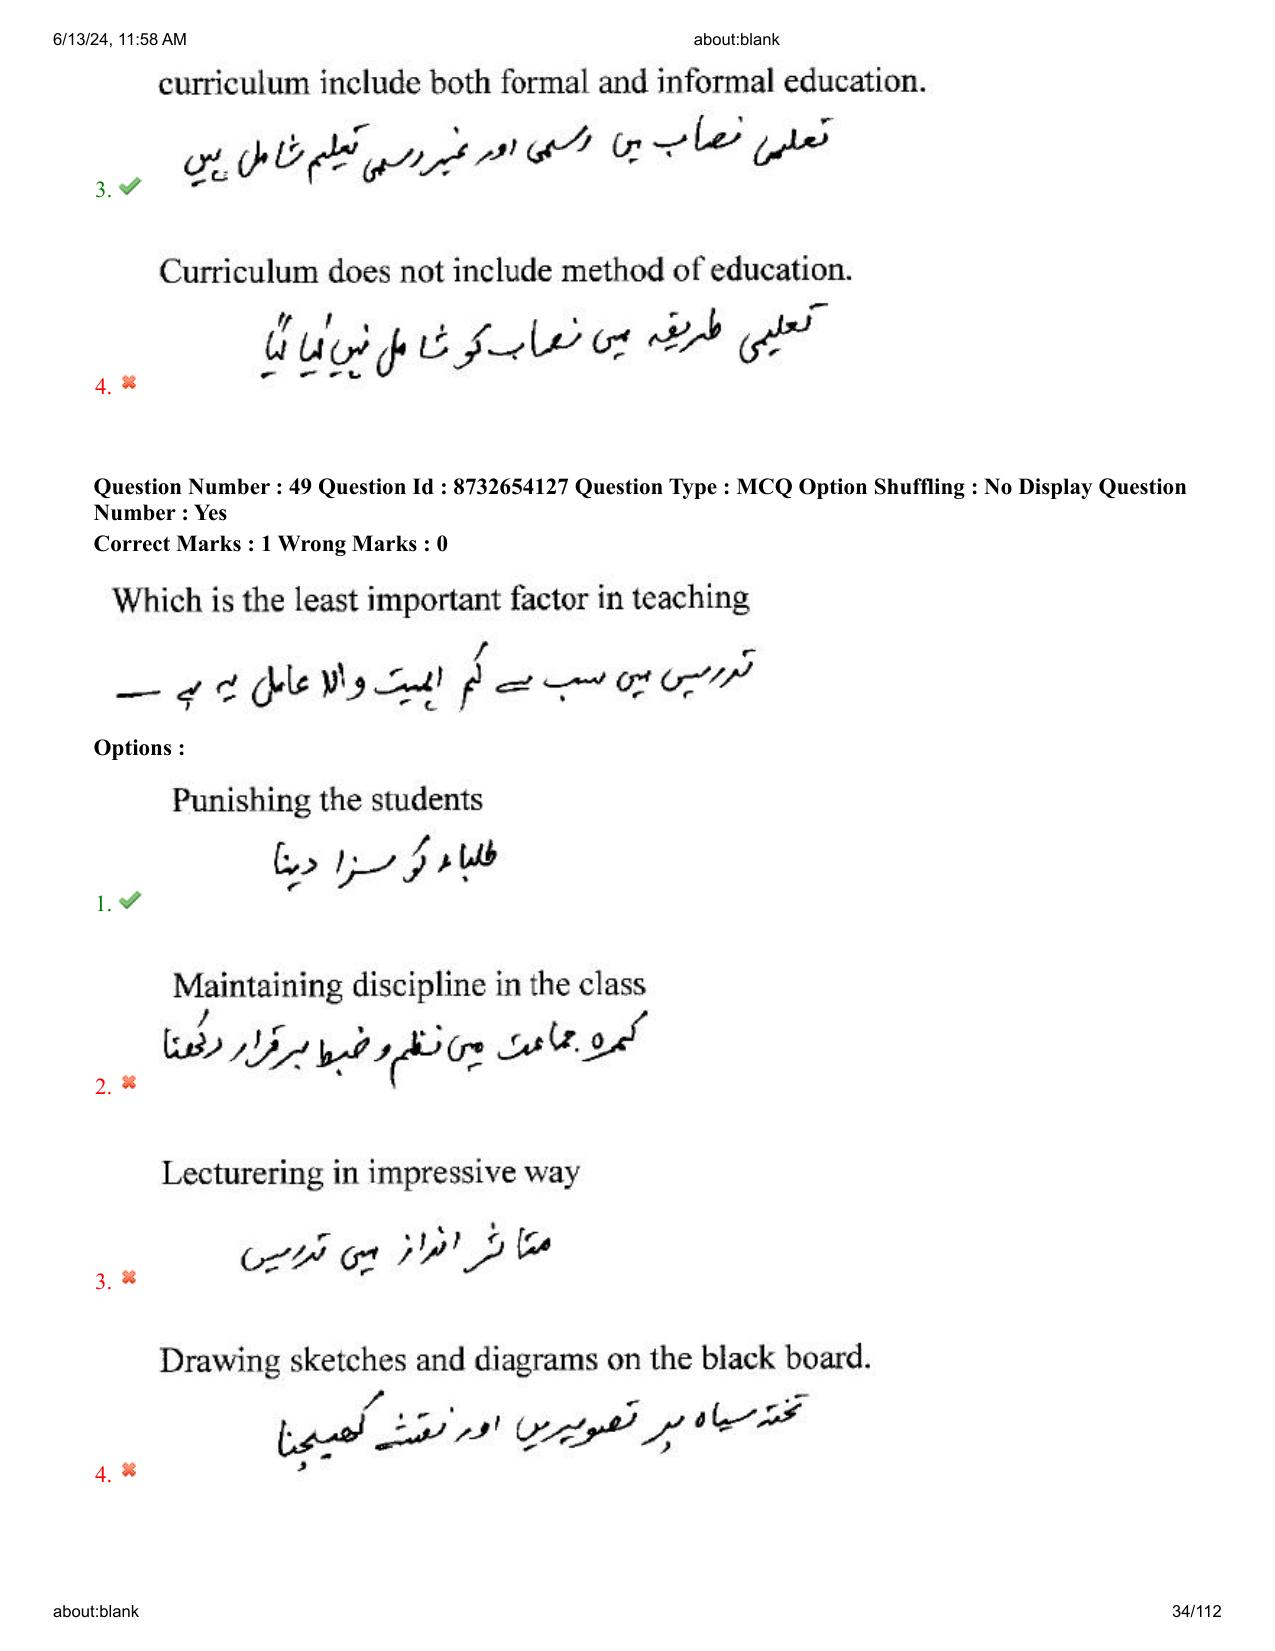 6/13/24, 11:58 AM about:blank
curriculum include both formal and informal education.
تعلیمی نصاب میں رسمی اور غیر رسمی تعلیم شامل ہیں
3.
Curriculum does not include method of education.
تعلیمی طریقہ میں نصاب کو شامل نہیں کیا گیا
4.
Question Number : 49 Question Id : 8732654127 Question Type : MCQ Option Shuffling : No Display Question
Number : Yes
Correct Marks : 1 Wrong Marks : 0
Which is the least important factor in teaching
تدریس میں سب سے کم اہمیت والا عامل یہ ہے —
Options :
Punishing the students
طلباء کو سزا دینا
1.
Maintaining discipline in the class
کمرہ جماعت میں نظم و ضبط برقرار رکھنا
2.
Lecturering in impressive way
متاثر انداز میں تدریس
3.
Drawing sketches and diagrams on the black board.
تختہ سیاہ پر تصویریں اور نقشے کھینچنا
4.
about:blank 34/112